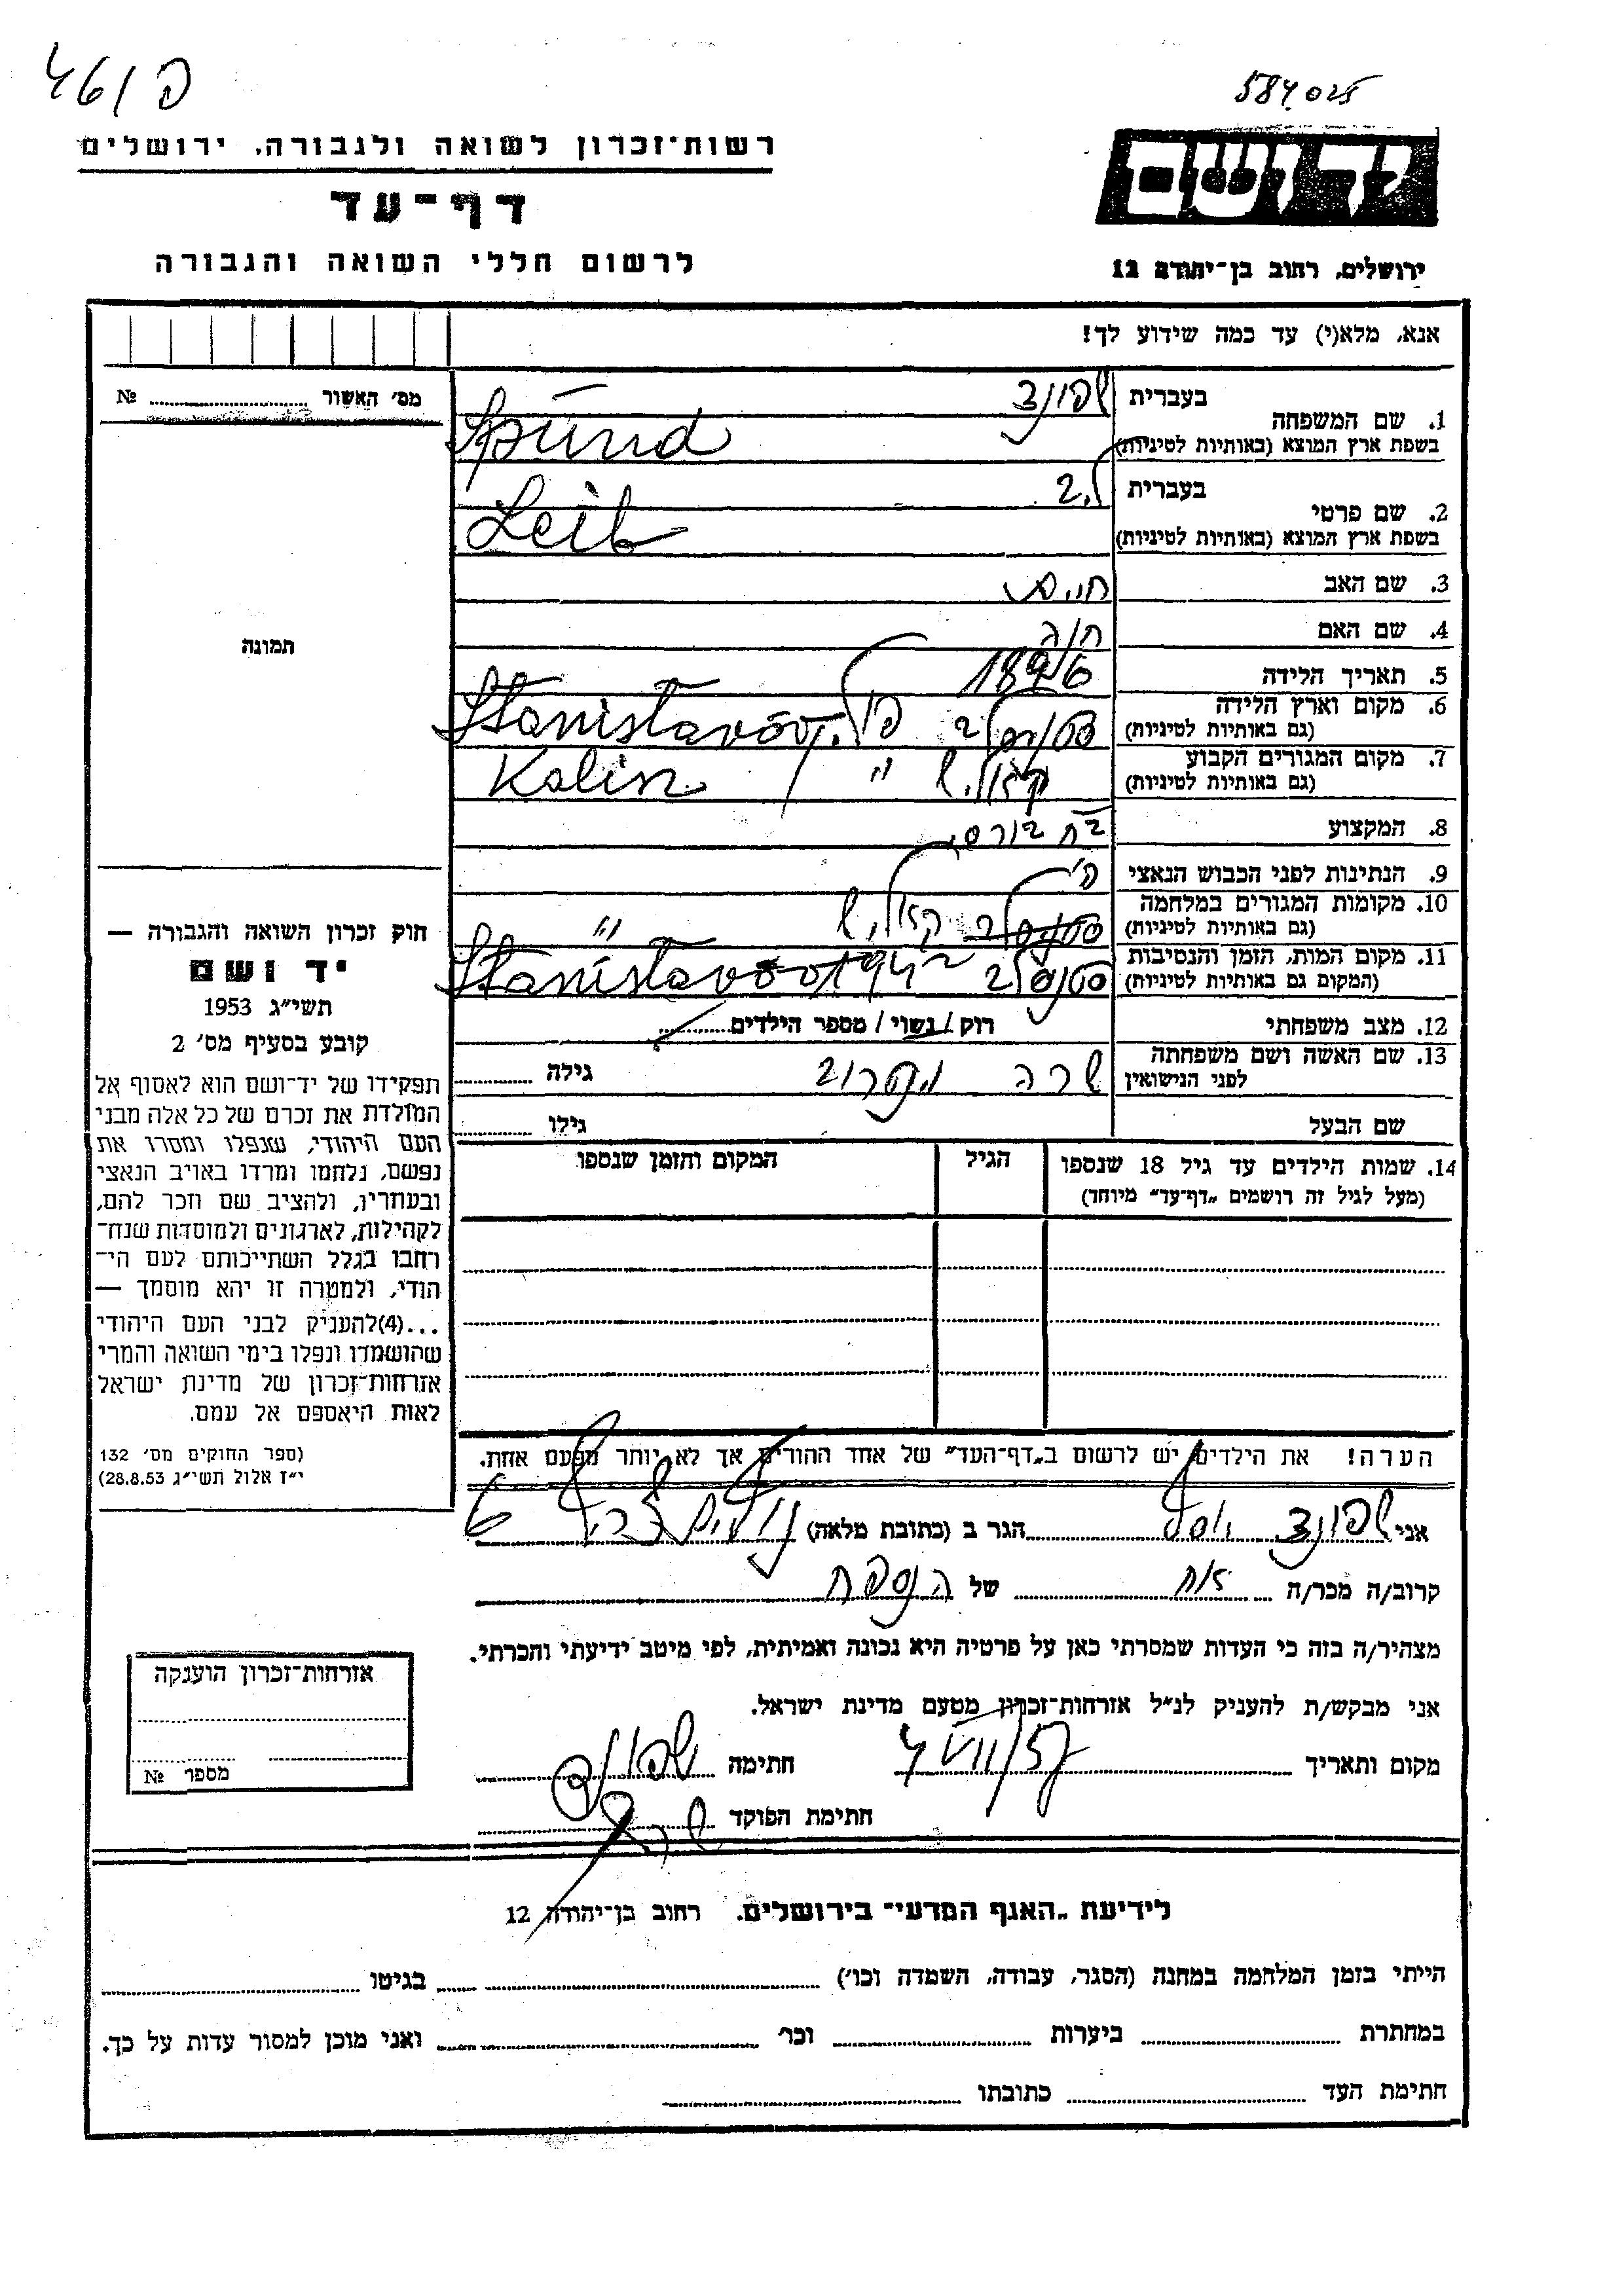 461 פ
584025
רשות-זכרון לשואה ולגבורה, ירושלים
דף-עד
לרשום חללי השואה והגבורה
יד ושם
ירושלים, רחוב בן-יהודה 12
אנא, מלא(י) עד כמה שידוע לך!
מס׳ האשור № 
1. שם המשפחה בעברית שפונד
בשפת ארץ המוצא (באותיות לטיניות) Spund
2. שם פרטי בעברית ליב
בשפת ארץ המוצא (באותיות לטיניות) Leib
3. שם האב חיים
4. שם האם חוה
5. תאריך הלידה 1896
6. מקום וארץ הלידה (גם באותיות לטיניות) Stanisławów פולין
7. מקום המגורים הקבוע (גם באותיות לטיניות) קאליש " Kalisz
8. המקצוע
9. הנתינות לפני הכבוש הנאצי פ׳
10. מקומות המגורים במלחמה (גם באותיות לטיניות) קאליש "
11. מקום המות, הזמן והנסיבות (המקום גם באותיות לטיניות) Stanisławów 1942
12. מצב משפחתי רוק/נשוי/מספר הילדים
13. שם האשה ושם משפחתה לפני הנישואין שרה גילה
שם הבעל גילו
14. שמות הילדים עד גיל 18 שנספו (מעל לגיל זה רושמים „דף-עד״ מיוחד) הגיל המקום והזמן שנספו
תמונה
חוק זכרון השואה והגבורה —
יד ושם
תשי״ג 1953
קובע בסעיף מס׳ 2
תפקידו של יד-ושם הוא לאסוף אל
המולדת את זכרם של כל אלה מבני
העם היהודי, שנפלו ומסרו את
נפשם, נלחמו ומרדו באויב הנאצי
ובעוזריו, ולהציב שם וזכר להם,
לקהילות, לארגונים ולמוסדות שנח־
רחבו בגלל השתייכותם לעם הי־
הודי, ולמטרה זו יהא מוסמך —
...(4)להעניק לבני העם היהודי
שהושמדו ונפלו בימי השואה והמרי
אזרחות-זכרון של מדינת ישראל
לאות היאספם אל עמם.
(ספר החוקים מס׳ 132
י״ז אלול תשי״ג 28.8.53)
הערה! את הילדים יש לרשום ב„דף-העד״ של אחד ההורים אך לא יותר מפעם אחת.
אני שפונד יוסף הגר ב (כתובת מלאה)
קרוב/ה מכר/ה אח של הנספה
מצהיר/ה בזה כי העדות שמסרתי כאן על פרטיה היא נכונה ואמיתית, לפי מיטב ידיעתי והכרתי.
אני מבקש/ת להעניק לנ״ל אזרחות-זכרון מטעם מדינת ישראל.
מקום ותאריך חתימה שפונד
חתימת הפוקד
אזרחות-זכרון הוענקה
מספר №
לידיעת „האגף המדעי״ בירושלים. רחוב בן-יהודה 12
הייתי בזמן המלחמה במחנה (הסגר, עבודה, השמדה וכו׳) בגיטו
במחתרת ביערות וכו׳ ואני מוכן למסור עדות על כך.
חתימת העד כתובתו